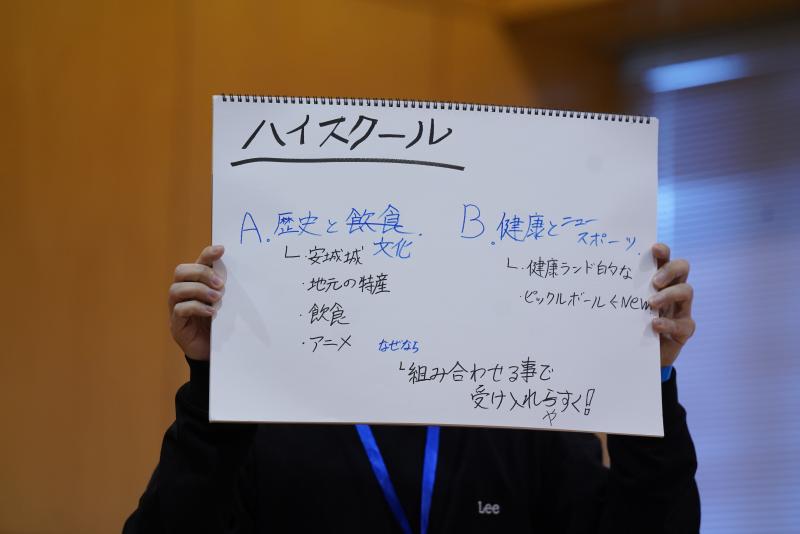 ハイスクール
A. 歴史と飲食.
文化
・安城城
・地元の特産
・飲食
・アニメ
B. 健康とニュー
スポーツ.
・健康ランド的な
・ピックルボール←New
なぜなら
組み合わせる事で
受け入れらすく!
や
Lee